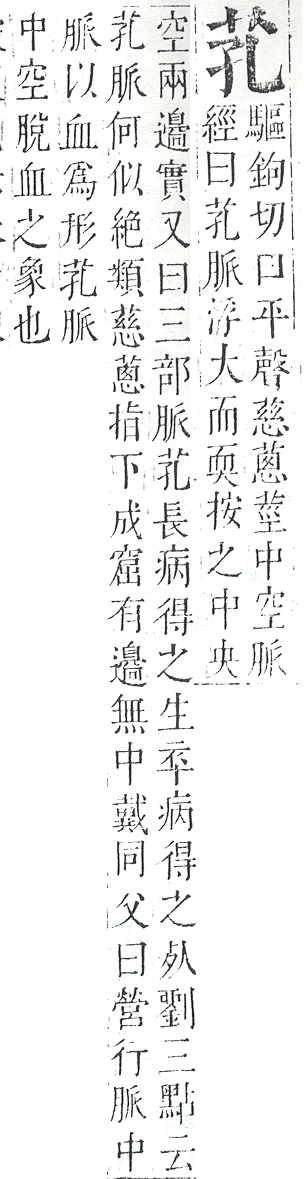 芤
驅鉤切口平聲慈蔥莖中空脈
經曰芤脈浮大而耎按之中央
空兩邊實又曰三部脈芤長病得之生卒病得之死劉三點云
芤脈何似絕類慈蔥指下成窟有邊無中戴同父曰營行脈中
脈以血為形芤脈
中空脫血之象也